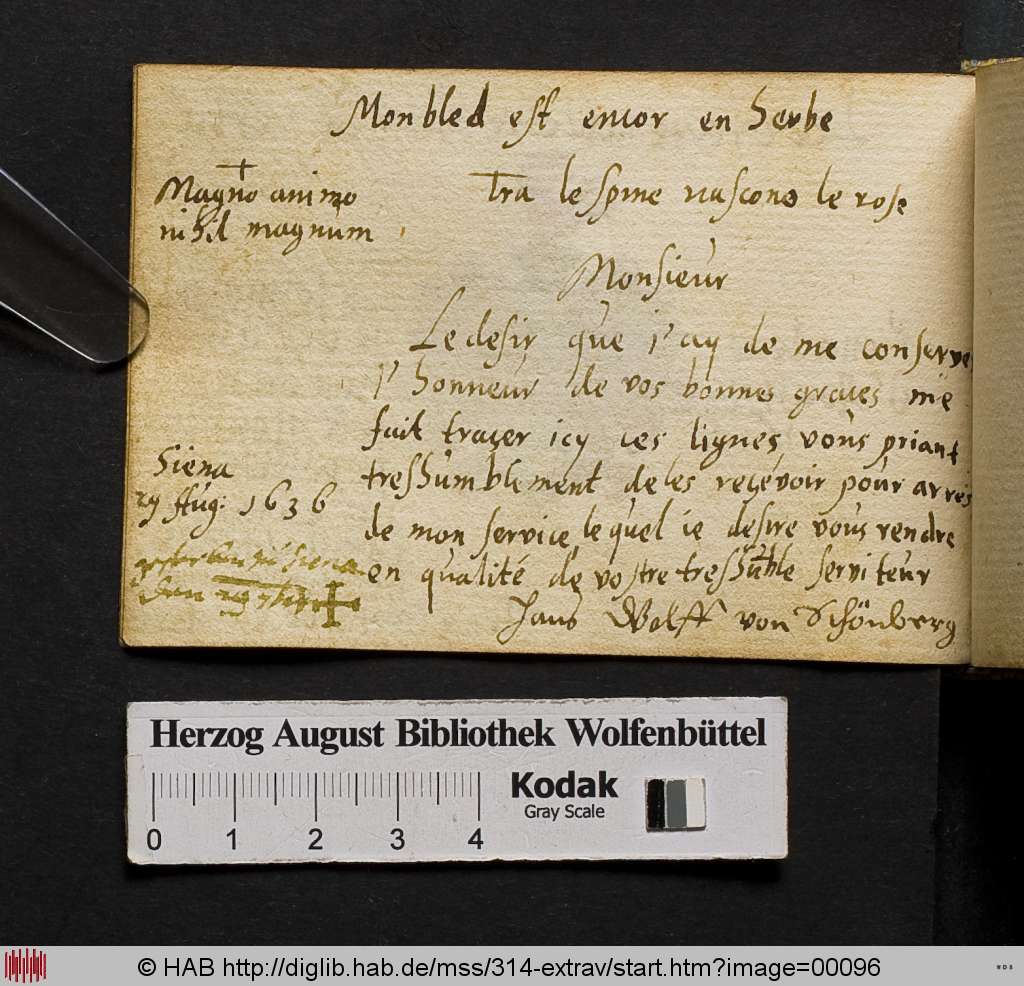 Mon bled est encor en herbe
Magno animo
nihil magnum
Tra le spine nascono le rose
Monsieur
Le desir que j'ay de me conserve
l'honneur de vos bonnes graces me
fait traçer icy ces lignes vous priant
treshumblement de les reçevoir pour arres
de mon service, lequel ie desire vous rendre
en qualité de vostre treshûble serviteur
Hans Wolff von Schönberg
Siena
29 Aug: 1636
gestorben zu Siena
den 29
Herzog August Bibliothek Wolfenbüttel
Kodak
Gray Scale
0 1 2 3 4
© HAB http://diglib.hab.de/mss/314-extrav/start.htm?image=00096